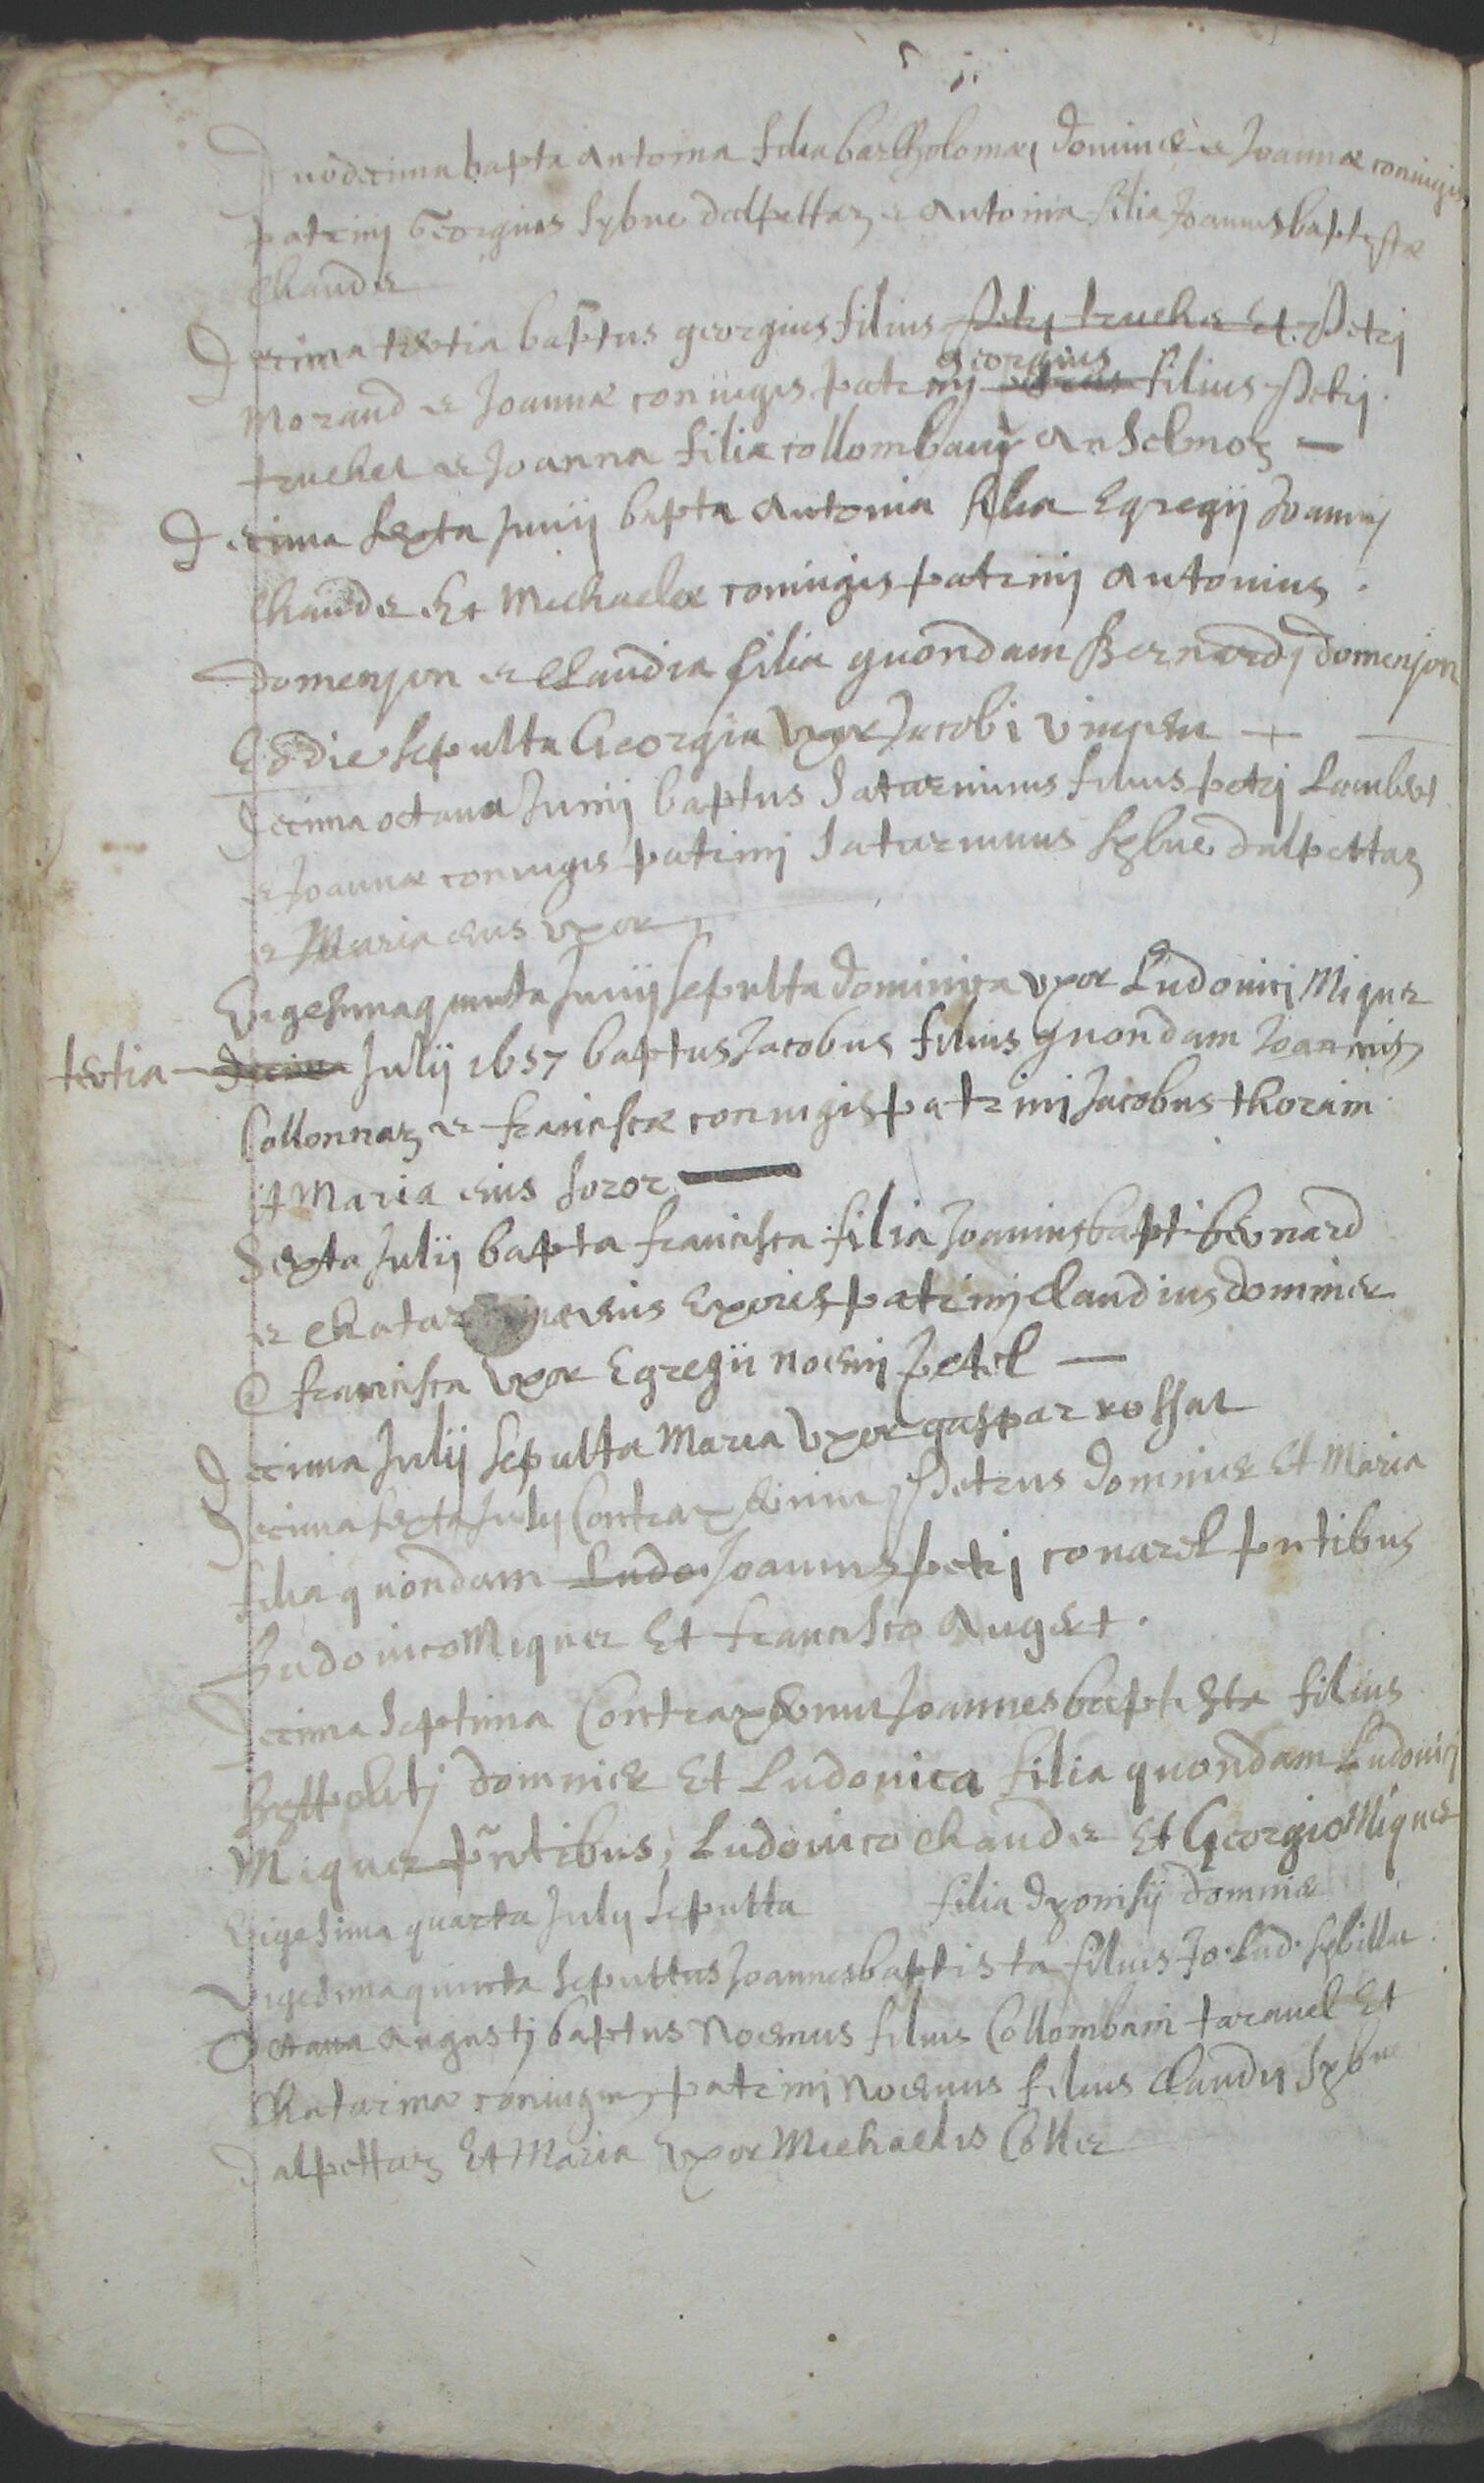 Duodecima bapta Antonia filia bartholomæi Dominicæ & Joannæ coniugis
patrinij Georgius Sybue dalpettaz & Antonia filia Joannis baptistæ
Chaudæ
Decima tertia baptus georgius filius Petrj truches Et Petrj
Morand & Joannæ coniugis patrinij georgius filius Petrj
truches & Joanna filia collombanj Anselmoz
Decima sexta Junij bapta Antonia filia Egregij Joannis
Chaudæ Et Michaelæ coniugis patrinij Antonius
domenjon & Claudia filia quondam Bernardj domenjon
Eodie sepulta Georgia Vxor Jacobi
Decima octaua Junij baptus Saturninus filius petrj Lambert
& Joannæ coniugis patrinij Saturninus Sybue dalpettaz
& Maria eius vxor
Vigesima quinta Junij sepulta dominica vxor Ludouicj Miquer
tertia Decima Julij 1657 baptus Jacobus filius quondam Joannis
Collonnaz & franciscæ coniugis patrinij Jacobus thorain
Et Maria eius soror
Sexta Julij bapta francisca filia Joannis bapti bernard
& Chatarinæ eius vxoris patrinij Claudius dominicæ
& francisca Vxor Egregii noemj petel
Decima Julij sepulta Maria Vxor gaspar rossat
Decima sexta Julij Contraxerunt Petrus Dominicæ Et Maria
filia quondam Ludo Joannis petrj conarel pntibus
Ludouico Miquer Et francisco Auget.
Decima septima Contraxerunt Joannes baptista filius
hyppolitj dominicæ Et Ludouica filia quondam Ludouicj
Miquer pntibus, Ludouico Chaudæ Et Georgio Miquer
Vigesima quarta Julij sepulta filia dyonisij dominicæ
Vigesima quinta sepultus Joannes baptista filius Jo. Lud. sybillæ
Octaua Augustj baptus Noemus filius Collombani tarauel Et
Chatarinæ coniugum patrinij Noemus filius Claudij Sybue
Dalpettaz Et Maria Vxor Michaelis Coller